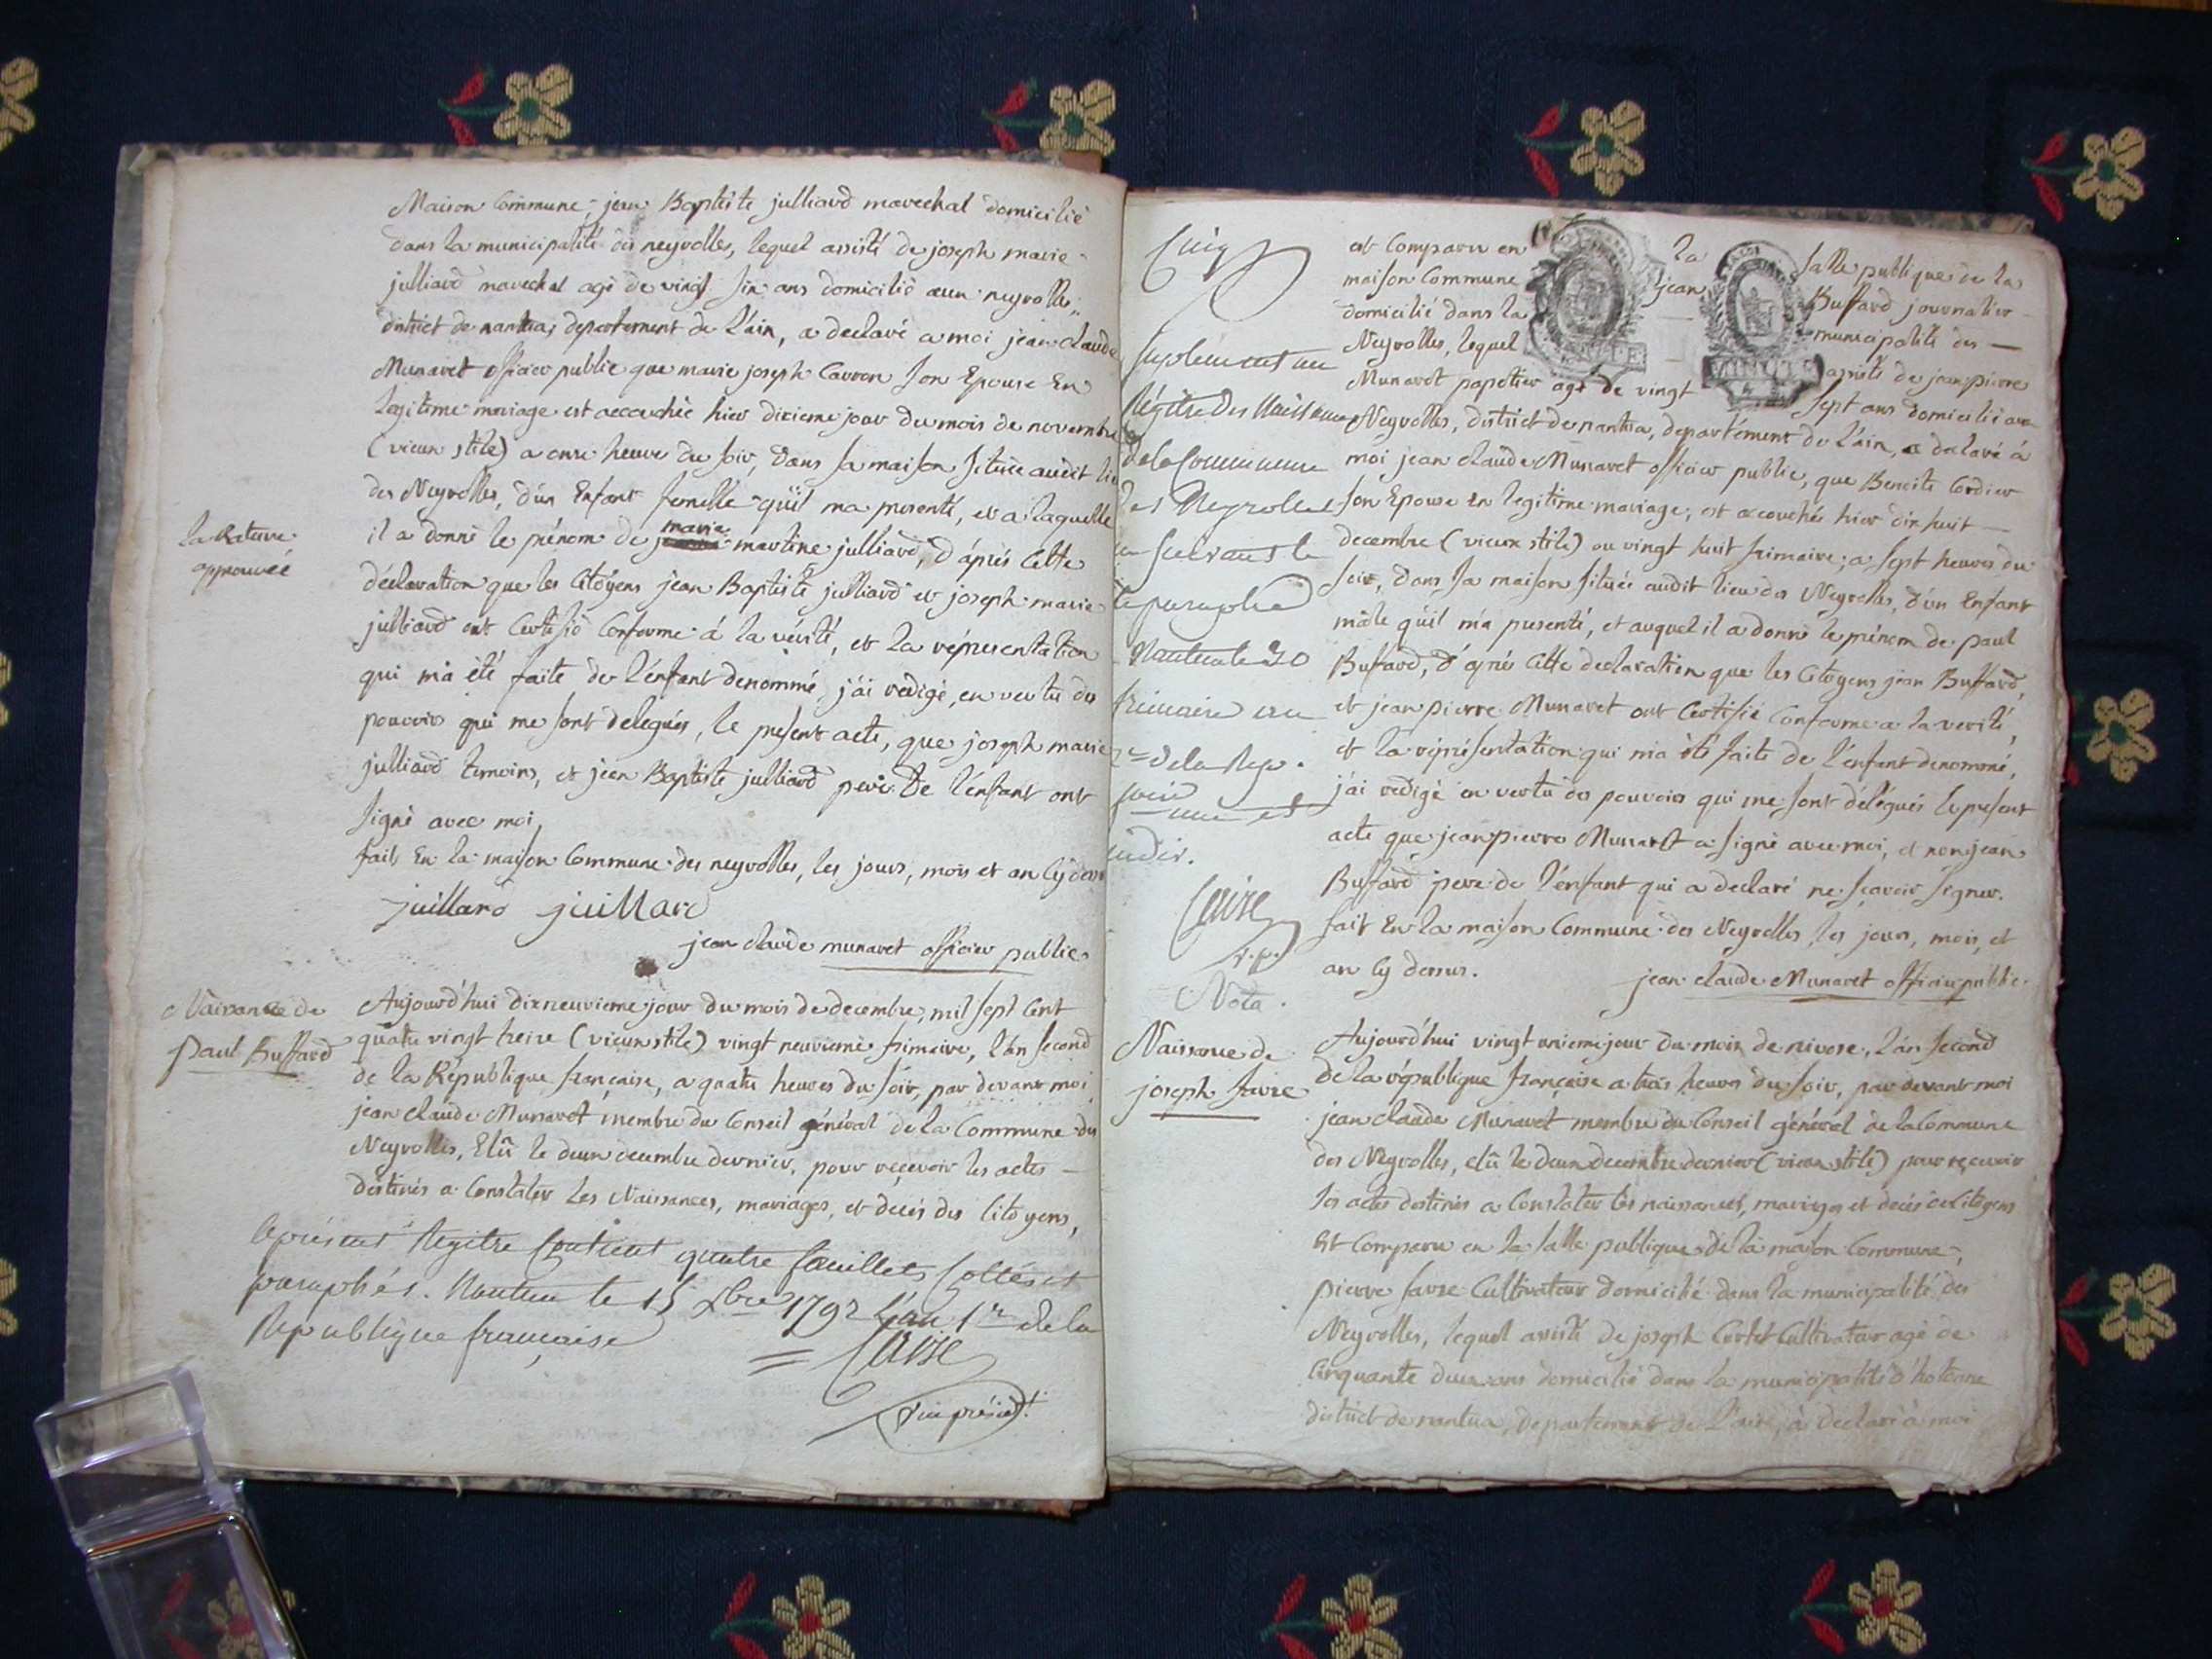 Maison Commune, jean Baptiste julliard marechal domicilié
dans la municipalité des neyrolles, lequel assisté de joseph marie
julliard marechal agé de vingt six ans domicilié aux neyrolles,
district de nantua, departement de l'ain, a declaré a moi jean claude
Munaret officier public que marie joseph Carron son Epouse En
legitime mariage est accouchée hier dixieme jour du mois de novembre
(vieux stile) a onze heure du soir, dans sa maison située audit lieu
des Neyrolles, d'un Enfant femelle qu'il ma presenté, et a laquelle
la Rature
approuvée
il a donné le prénom de marie martine julliard, d'aprés cette
déclaration que les Citoyens jean Baptiste julliard et joseph marie
julliard ont Certifié Conforme á la vérité, et la répresentation
qui m'a été faite de l'énfant denommé j'ai redigé, en vertu des
pouvoirs qui me sont delegués, le present acte, que joseph marie
julliard temoins, et jean Baptiste julliard pere de l'énfant ont
signé avec moi,
fait En la maison Commune des neyrolles, les jours, mois et an cy dessus
juillard juillard
jean claude munaret officier public
Naissance de
Paul Buffard
Aujourd'hui dixneuvieme jour du mois de decembre, mil sept Cent
quatre vingt treize (vieux stile) vingt neuvieme frimaire, l'an second
de la République française, a quatre heures du soir, par devant moi
jean claude Munaret membre du Conseil général de la Commune des
Neyrolles, Elû le deux decembre dernier, pour recevoir les actes
destinés a Constater les Naissances, mariages, et decés des Citoyens,
le présent Registre Contient quatre feuillets Cottés et
paraphés. Nantua le 15 Xbre 1792 L'an 1er de la
République française
Cinq
Supleiment au
Régitre des Naissances
de la Commune
les Neyrolles
Nantua le 30
frimaire an
2e de la Rep.
Nota.
est Comparu en la salle publique de la
maison Commune jean Buffard journalier
domicilié dans la municipalité des
Neyrolles, lequel assisté de jean pierre
Munaret papetier agé de vingt sept ans domicilié aux
MINUTE
MINUTE
Neyrolles, district de nantua, departément de l'ain, a déclaré á
moi jean claude Munaret officier public, que Benoite Cordier
son Epouse en legitime mariage, est accouchée hier dix huit
decembre (vieux stile) ou vingt huit frimaire, a sept heures du
soir, dans sa maison située audit lieu des Neyrolles, d'un Enfant
mâle qu'il m'a presenté, et auquel il a donné le prénom de paul
Buffard, d'aprés cette declaration que les Citoyens jean Buffard,
et jean pierre Munaret ont Certifié Conforme a la verité,
et la réprésentation qui m'a été faite de l'énfant denommé,
j'ai redigé en vertu des pouvoirs qui me sont délégués le present
acte que jean pierre Munaret a signé avec moi, et non jean
Buffard pere de l'énfant qui a declaré ne sçavoir signer.
fait En la maison Commune des Neyrolles les jours, mois, et
an cy dessus.
jean claude Munaret officier public
Naissance de
joseph favre
Aujourd'hui vingt unieme jour du mois de nivose, l'an second
de la république française a trois heures du soir, par devant moi
jean claude Munaret membre du Conseil général de la Commune
des Neyrolles, elû le deux decembre dernier (vieux stile) pour reçevoir
les actes destinés a Constater les naissances, mariages et decés des Citoyens
Est Comparu en la salle publique de la maison Commune,
pierre favre Cultivateur domicilié dans la municipalité des
Neyrolles, lequel assisté de joseph Cultivateur agé de
Cinquante deux ans domicilié dans la municipalité d'hotonne
district de nantua, departement de l'ain, á declaré á moi